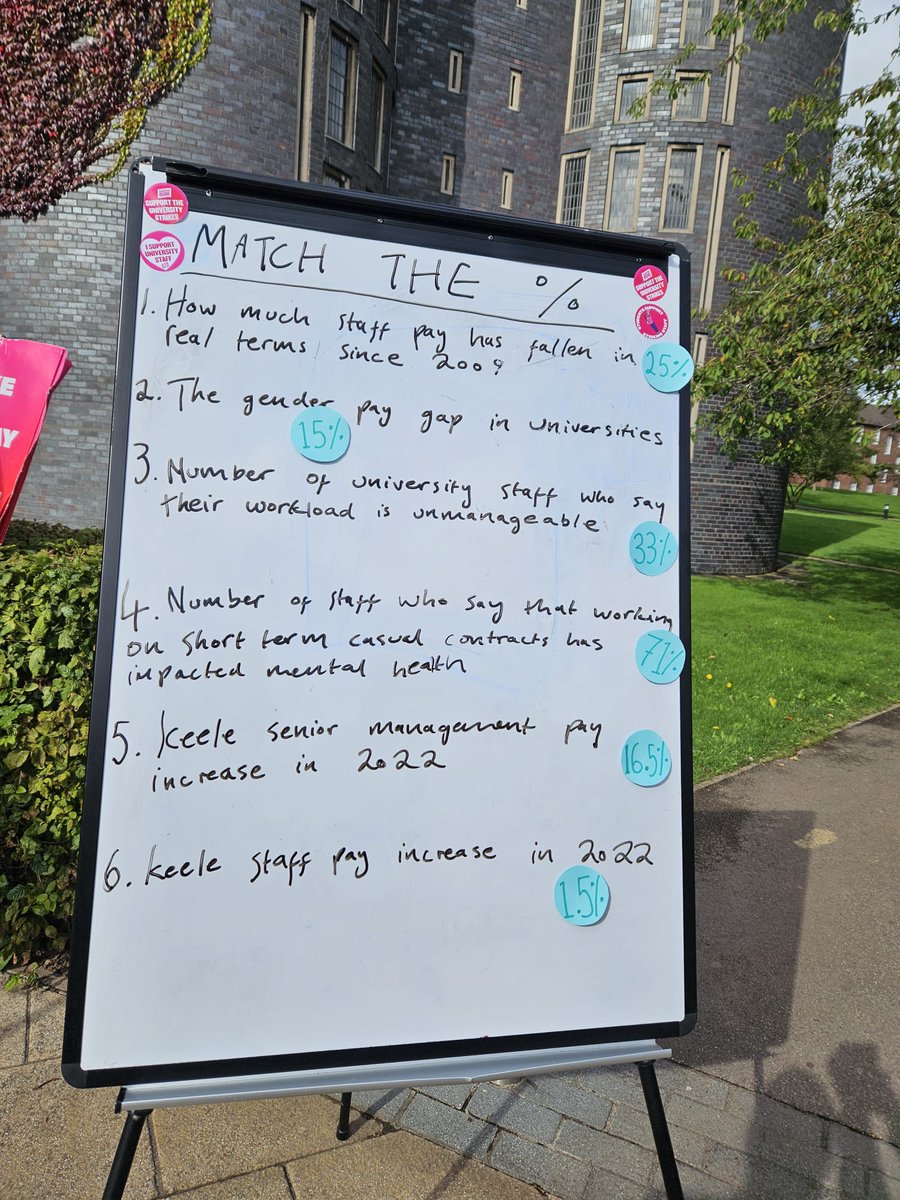 SUPPORT THE
UNIVERSITY
STRIKES
I SUPPORT
UNIVERSITY
STAFF
SUPPORT THE
UNIVERSITY
STRIKES
MATCH THE %
1. How much staff pay has fallen in
real terms since 2009
25%
2. The gender pay gap in universities
15%
3. Number of university staff who say
their workload is unmanageable
33%
4. Number of staff who say that working
on short term casual contracts has
impacted mental health
71%
5. Keele senior management pay
increase in 2022
16.5%
6. Keele staff pay increase in 2022
1.5%